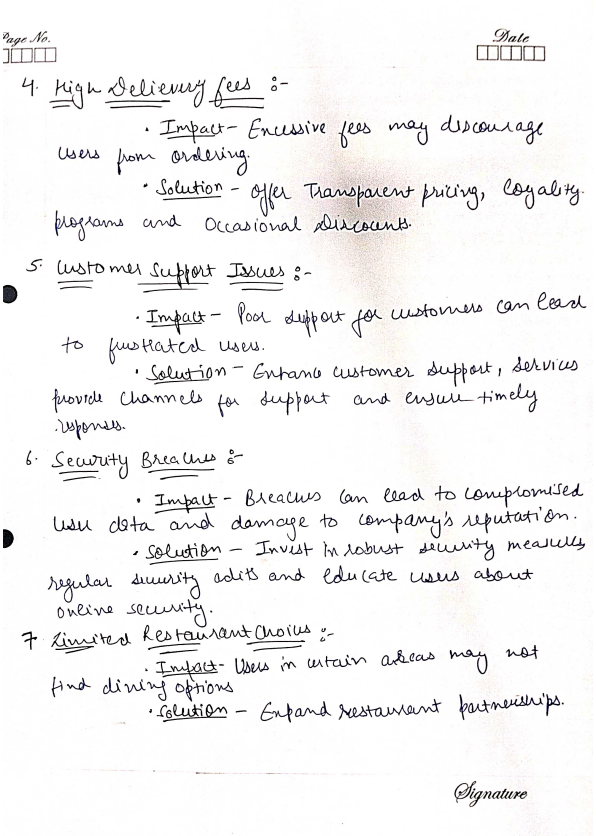 Page No.
Date
4. High Delievery fees :-
• Impact - Excessive fees may discourage
users from ordering.
• Solution - Offer Transparent pricing, loyality
programs and Occasional Discounts.
5. Customer Support Issues :-
• Impact - Poor support for customers can lead
to frustrated users.
• Solution - Enhance customer support, services
provide channels for support and ensure timely
responses.
6. Security Breaches :-
• Impact - Breaches can lead to compromised
user data and damage to company's reputation.
• Solution - Invest in robust security measures,
regular security adits and educate users about
online security.
7 Limited Restaurant Choices :-
• Impact - Users in certain areas may not
find dining options
• Solution - Expand restaurant partnerships.
Signature